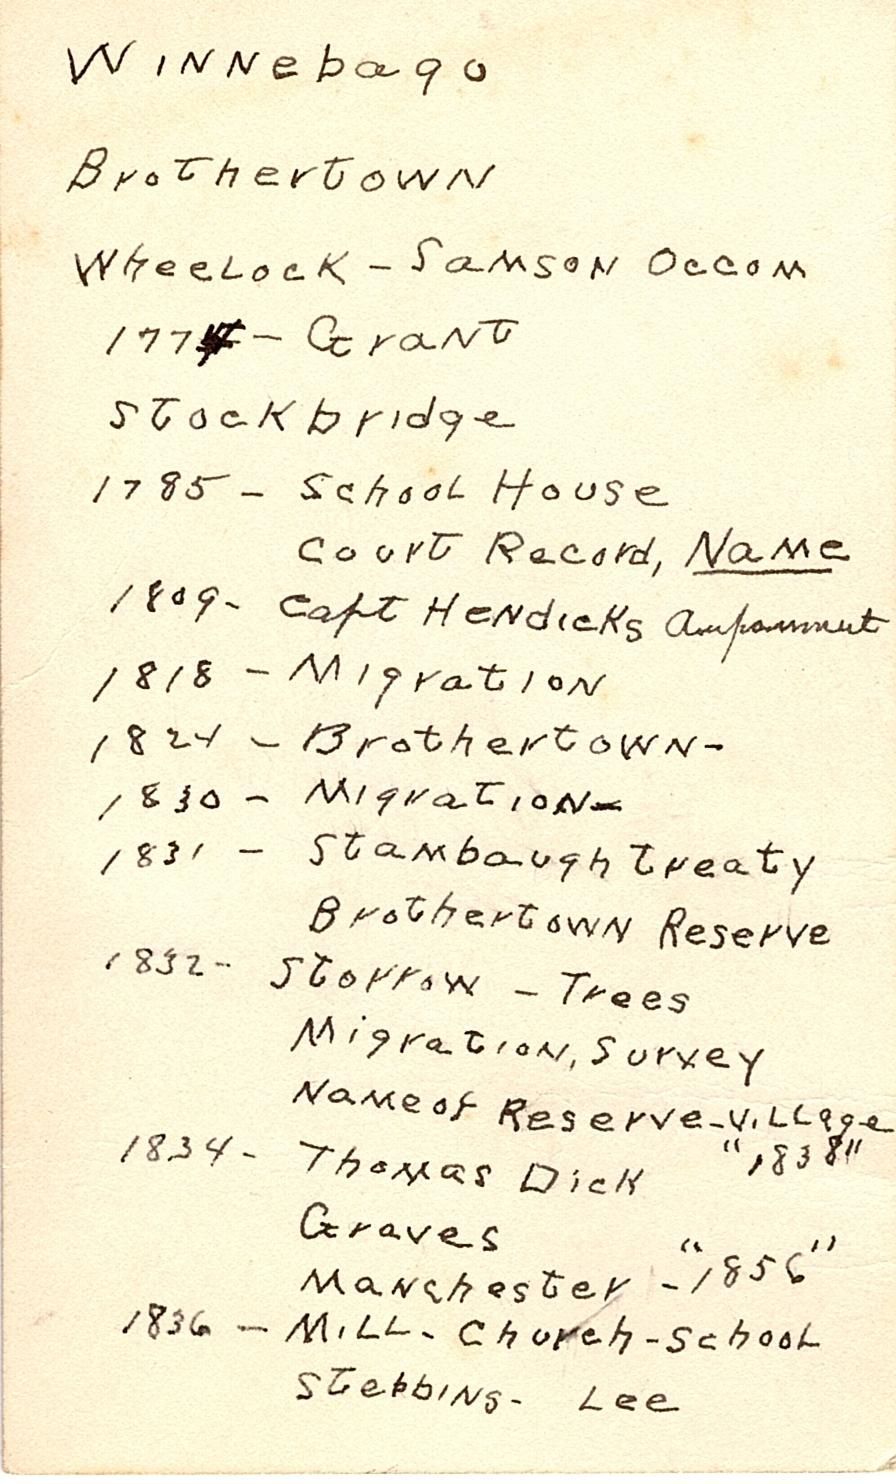 Winnebago
Brothertown
Wheelock - Samson Occom
1774 - Grant
Stockbridge
1785 - School House
Court Record, Name
1809 - Capt Hendicks Aupaumut
1818 - Migration
1824 - Brothertown -
1830 - Migration -
1831 - Stambaugh treaty
Brothertown Reserve
1832 - Storrow - Trees
Migration, Survey
Name of Reserve - Village
"1838"
1834 - Thomas Dick
Graves
Manchester - "1856"
1836 - Mill - Church - School
Stebbins - Lee